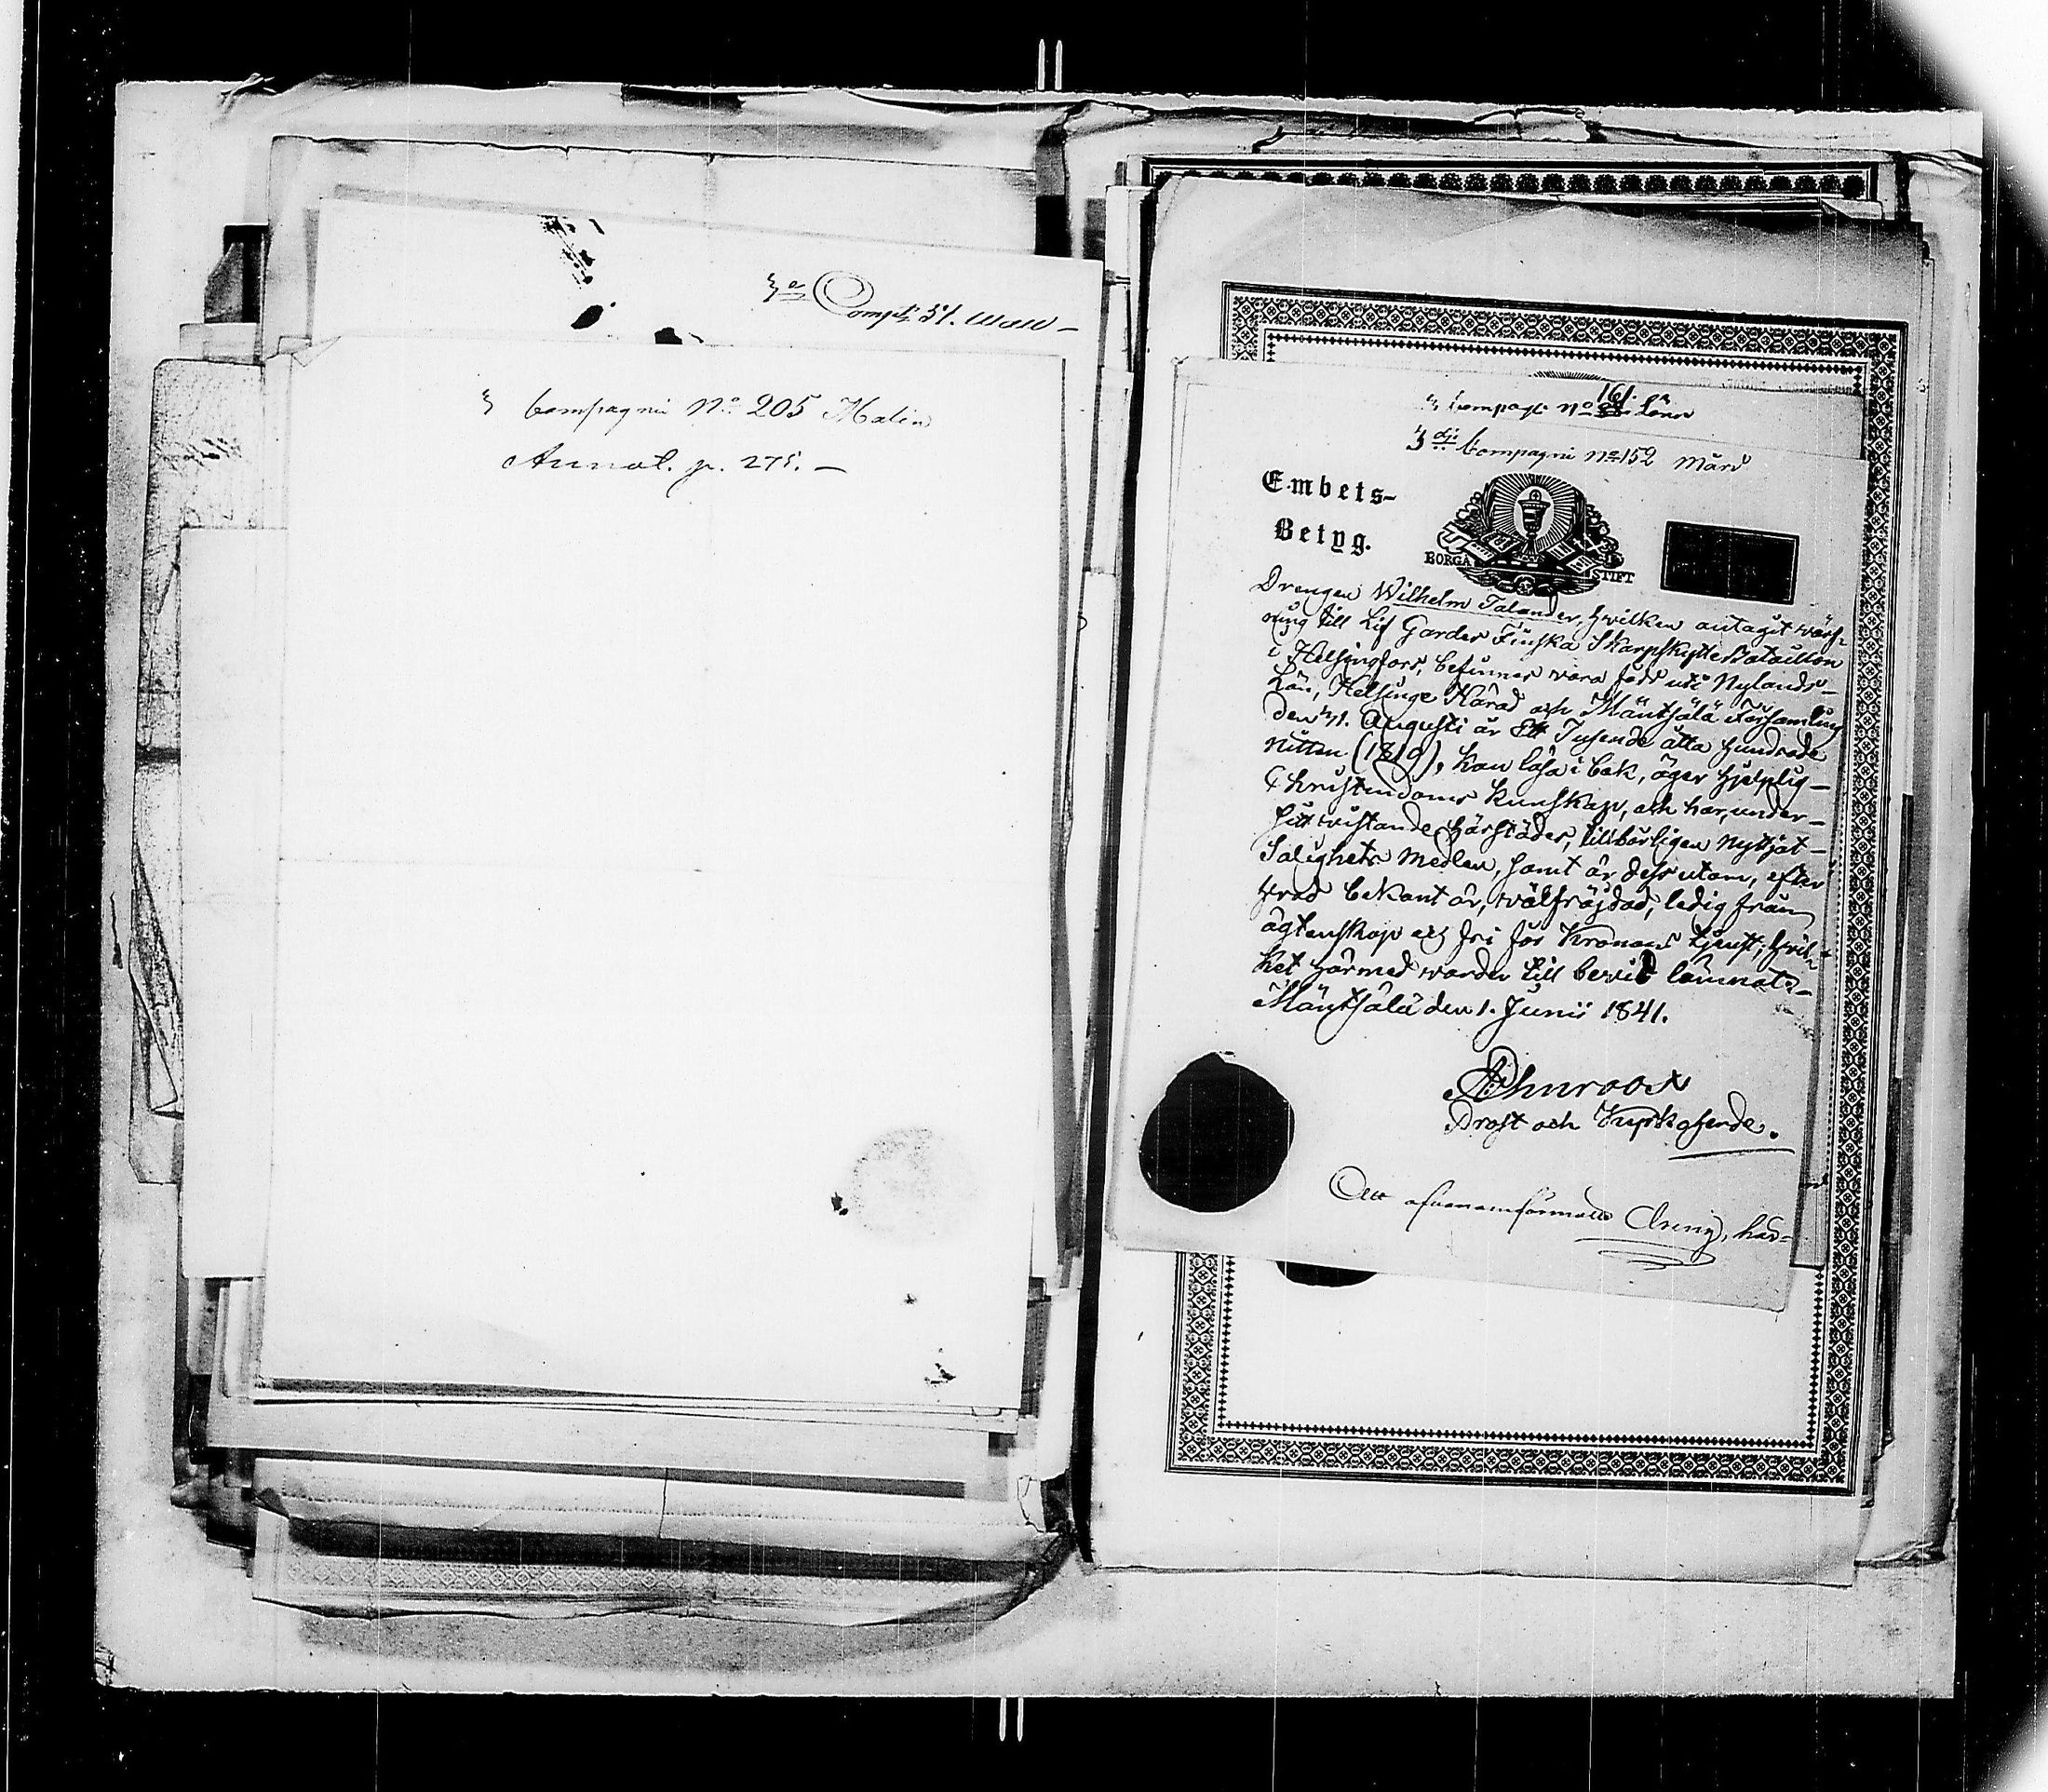 3e Comp: 51. Wall –
3 Compagnie No 205 Malin
Annot. p. 275. –
3 Compagi No 161
3dje Compagni No 152 Mård
Embets-
Betyg.
BORGÅ STIFT
Drengen Wilhelm Talander, hvilken antagit värf-
ning till Lif Gardes Finska Skarpskytte Bataillon
i Helsingfors, befinnes vara född uti Nylands-
Län, Helsinge Härad och Mäntsälä Församling
den 31. Augusti år Ett Tusende åtta hundrade
nitton (1819), kan läsa i bok, äger hjelplig-
Christendoms kunskap, och har, under-
sitt vistande härstädes, tillbörligen nyttjat-
Salighets medlen, samt är dessutom, efter
hvad bekant är, välfräjdad, ledig från
ägtenskap och fri för Kronans tjenst; hvil-
ket härmed warder till bevis lämnat. –
Mäntsälä den 1. Junii 1841.
Ahnroos
Prost och Kyrkoherde.
Att ofvanomförmälte Dreng, här-